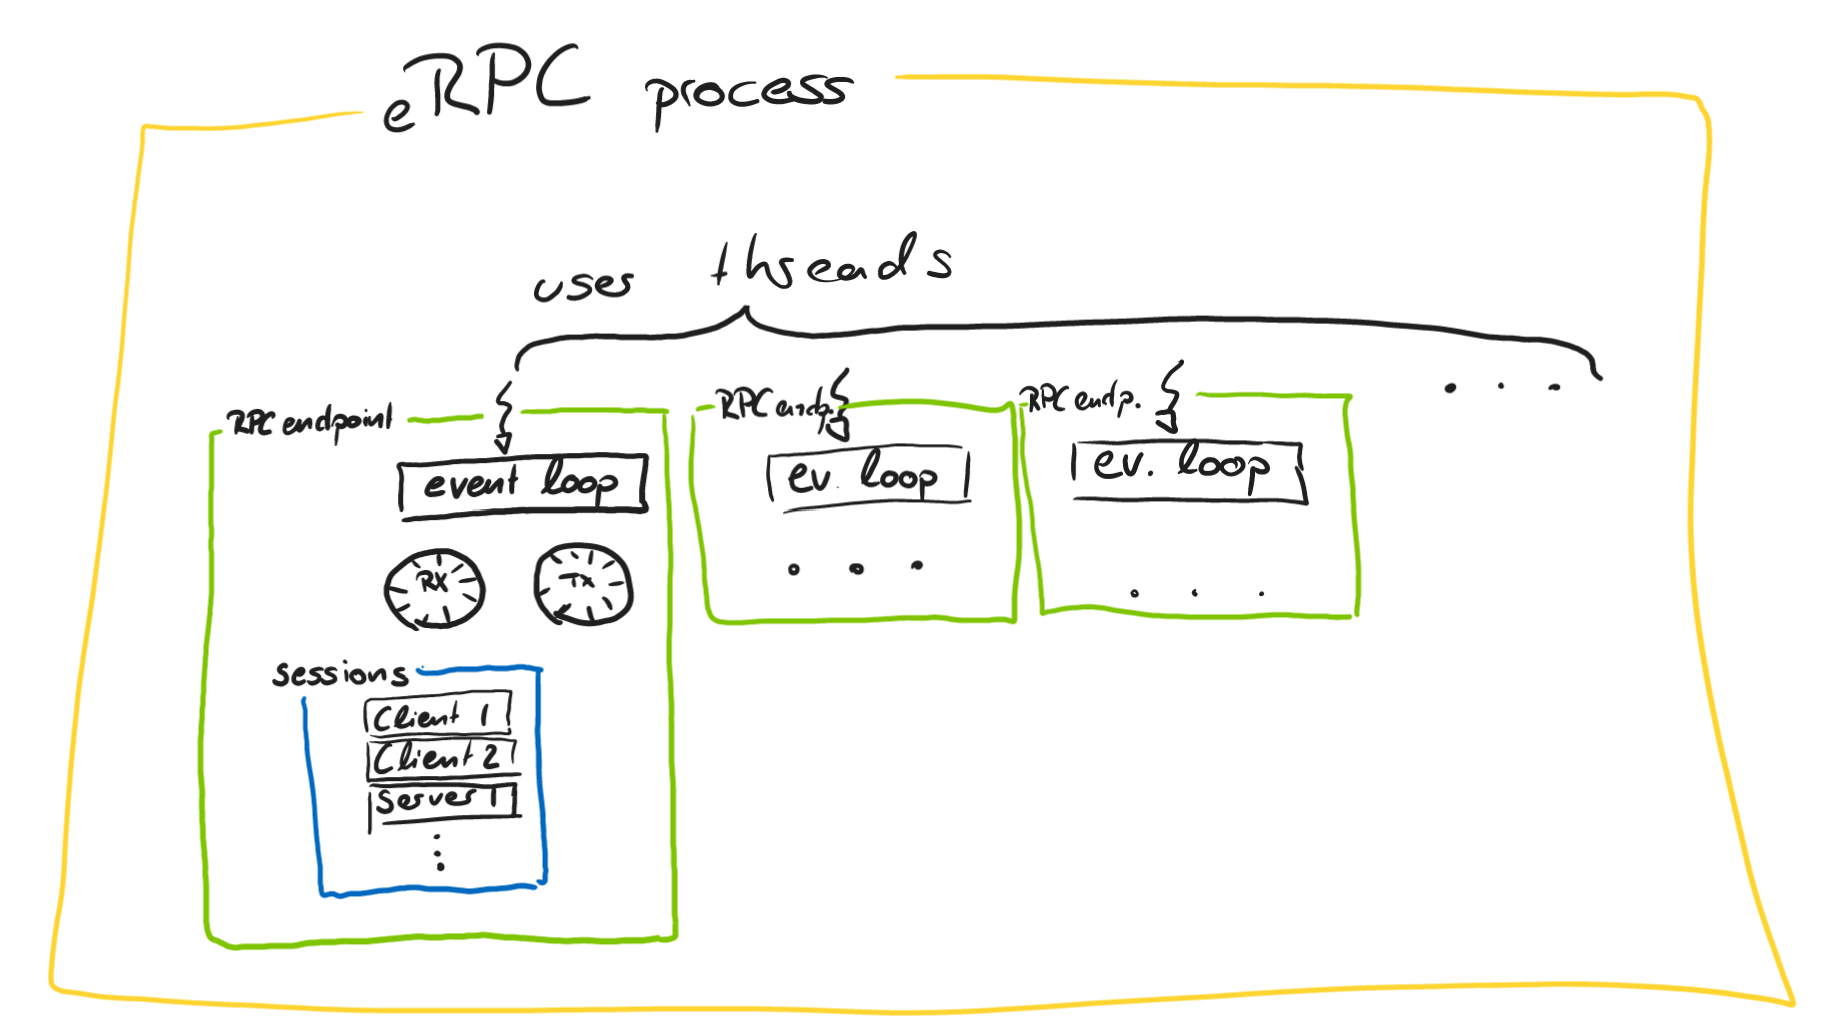 eRPC process
uses threads
RPC endpoint
event loop
RX
TX
sessions
Client 1
Client 2
Server 1
RPC endp.
ev. loop
RPC endp.
ev. loop